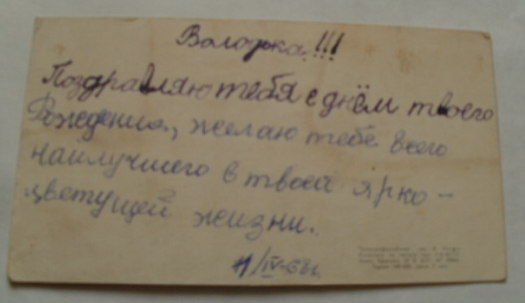 Володька!!!
Поздравляю тебя с днём твоего
Рождения, желаю тебе всего
наилучшего в твоей ярко-
цветущей жизни.
11/IV-68г.